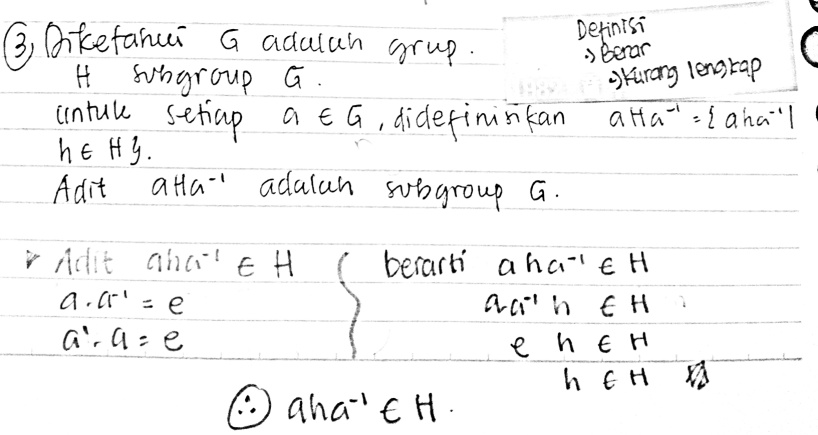 ③ Diketahui G adalah grup.
H subgroup G.
untuk setiap a ∈ G, didefinisikan aHa⁻¹ = { aha⁻¹ |
h ∈ H }.
Adit aHa⁻¹ adalah subgroup G.
Definisi
→ Benar
→ Kurang lengkap
Adit aha⁻¹ ∈ H
a . a⁻¹ = e
a⁻¹ . a = e
berarti aha⁻¹ ∈ H
aa⁻¹ h ∈ H
e h ∈ H
h ∈ H
∴ aha⁻¹ ∈ H.